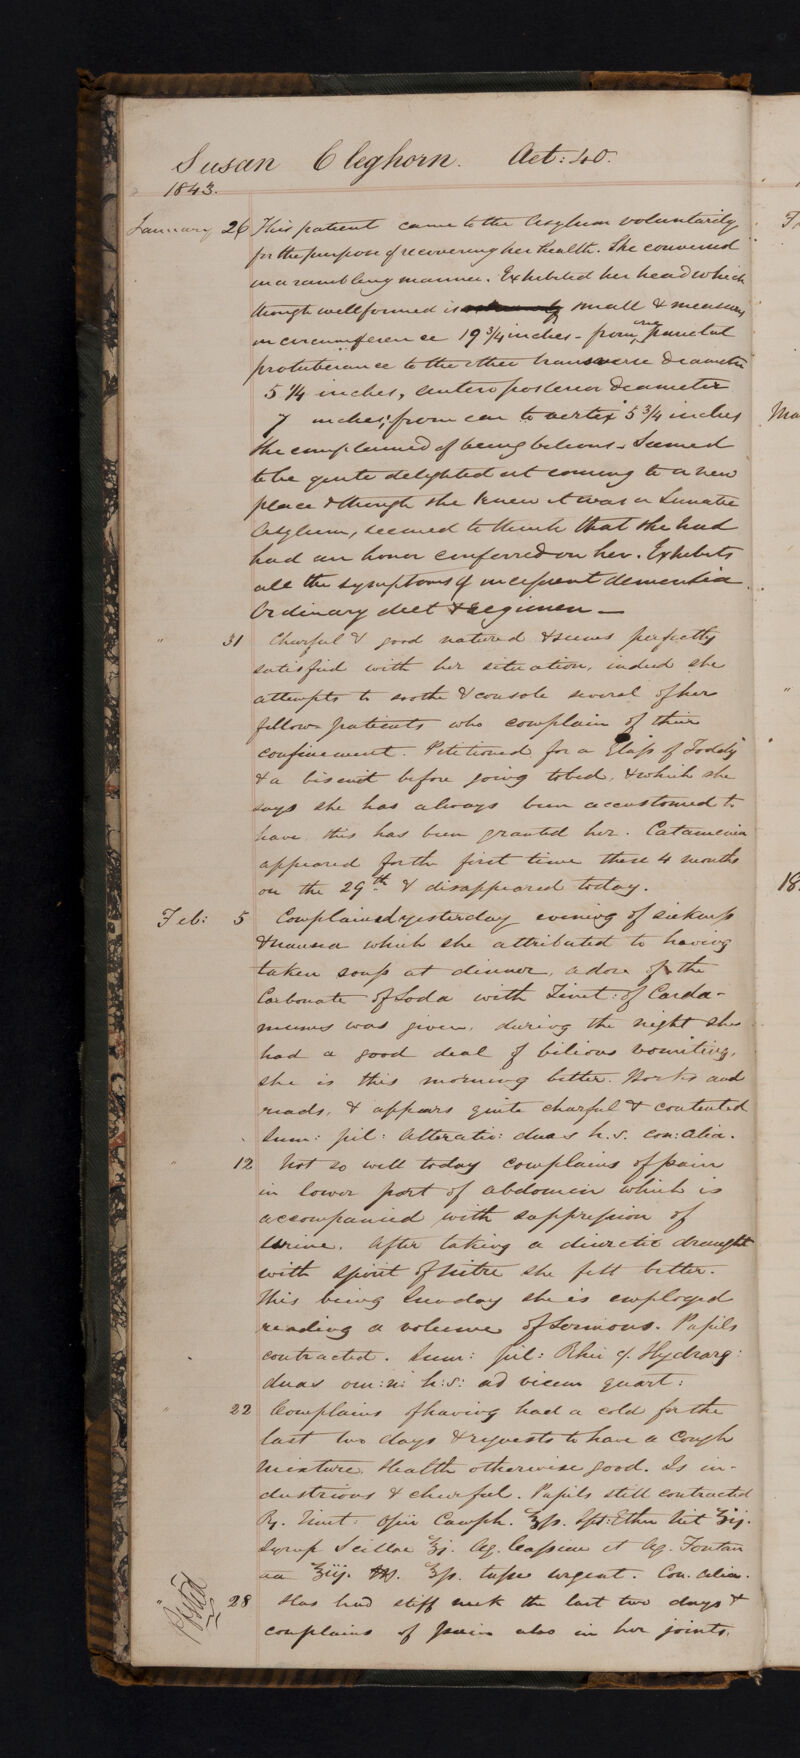 Susan Cleghorn. Aet: 40.
1843.
January 26 This patient came to the Asylum voluntarily
for the purpose of recovering her health. She conversed
in a rambling manner. Exhibited her head which
though well formed is small & measures
in circumference 19 3/4 inches - from one parietal
protuberance to the other transverse diameter
5 1/4 inches, antero posterior diameter
7 inches; from ear to vertex 5 3/4 inches
She complained of being bilious - Seemed
to be quite delighted at coming to a new
place & though she knew it was a Lunatic
Asylum, seemed to think that she had
had an honor conferred on her. Exhibits
all the symptoms of incipient dementia.
Ordinary diet & regimen —
" 31 Cheerful & good natured & seems perfectly
satisfied with her situation, indeed she
attempts to soothe & console several of her
fellow patients who complain of their
confinement. Petitioned for a Glass of Toddy
& a biscuit before going to bed, & which she
says she has always been accustomed to
have, this has been granted her. Catamenia
appeared for the first time these 4 months
on the 29th & disappeared today.
Feb: 5 Complained yesterday evening of sickness
& nausea which she attributed to having
taken soup at dinner, a dose of the
Carbonate of Soda with Tinct: of Carda-
mums was given, during the night she
had a good deal of bilious vomiting,
she is this morning better. Works and
reads, & appears quite cheerful & contented
Sum: pil: Alterativ: duas h.s. con: alia.
" 12 Not so well today complains of pain
in lower part of abdomen which is
accompanied with suppression of
urine. After taking a diuretic draught
with spirit of nitre she felt better.
This being Sunday she is employed
reading a volume of Sermons. Pupils
contracted. Sum: pil: Rhei c. Hydrarg:
duas om: n: h: s: ad vicem quart:
" 22 Complains of having had a cold for the
last two days & requests to have a Cough
Mixture. Health otherwise good. Is in-
dustrious & cheerful. Pupils still contracted
Rx. Tinct: Opii Camph. ʒss. Spt: Ether Nit ʒij.
Syrup Scillae ʒj. Aq. Cassiae et Aq. Fontan
aa ʒiij. M. ʒss. tusse urgent. Con. alia.
" 28 Has had stiff neck the last two days &
complains of pain also in her joints.